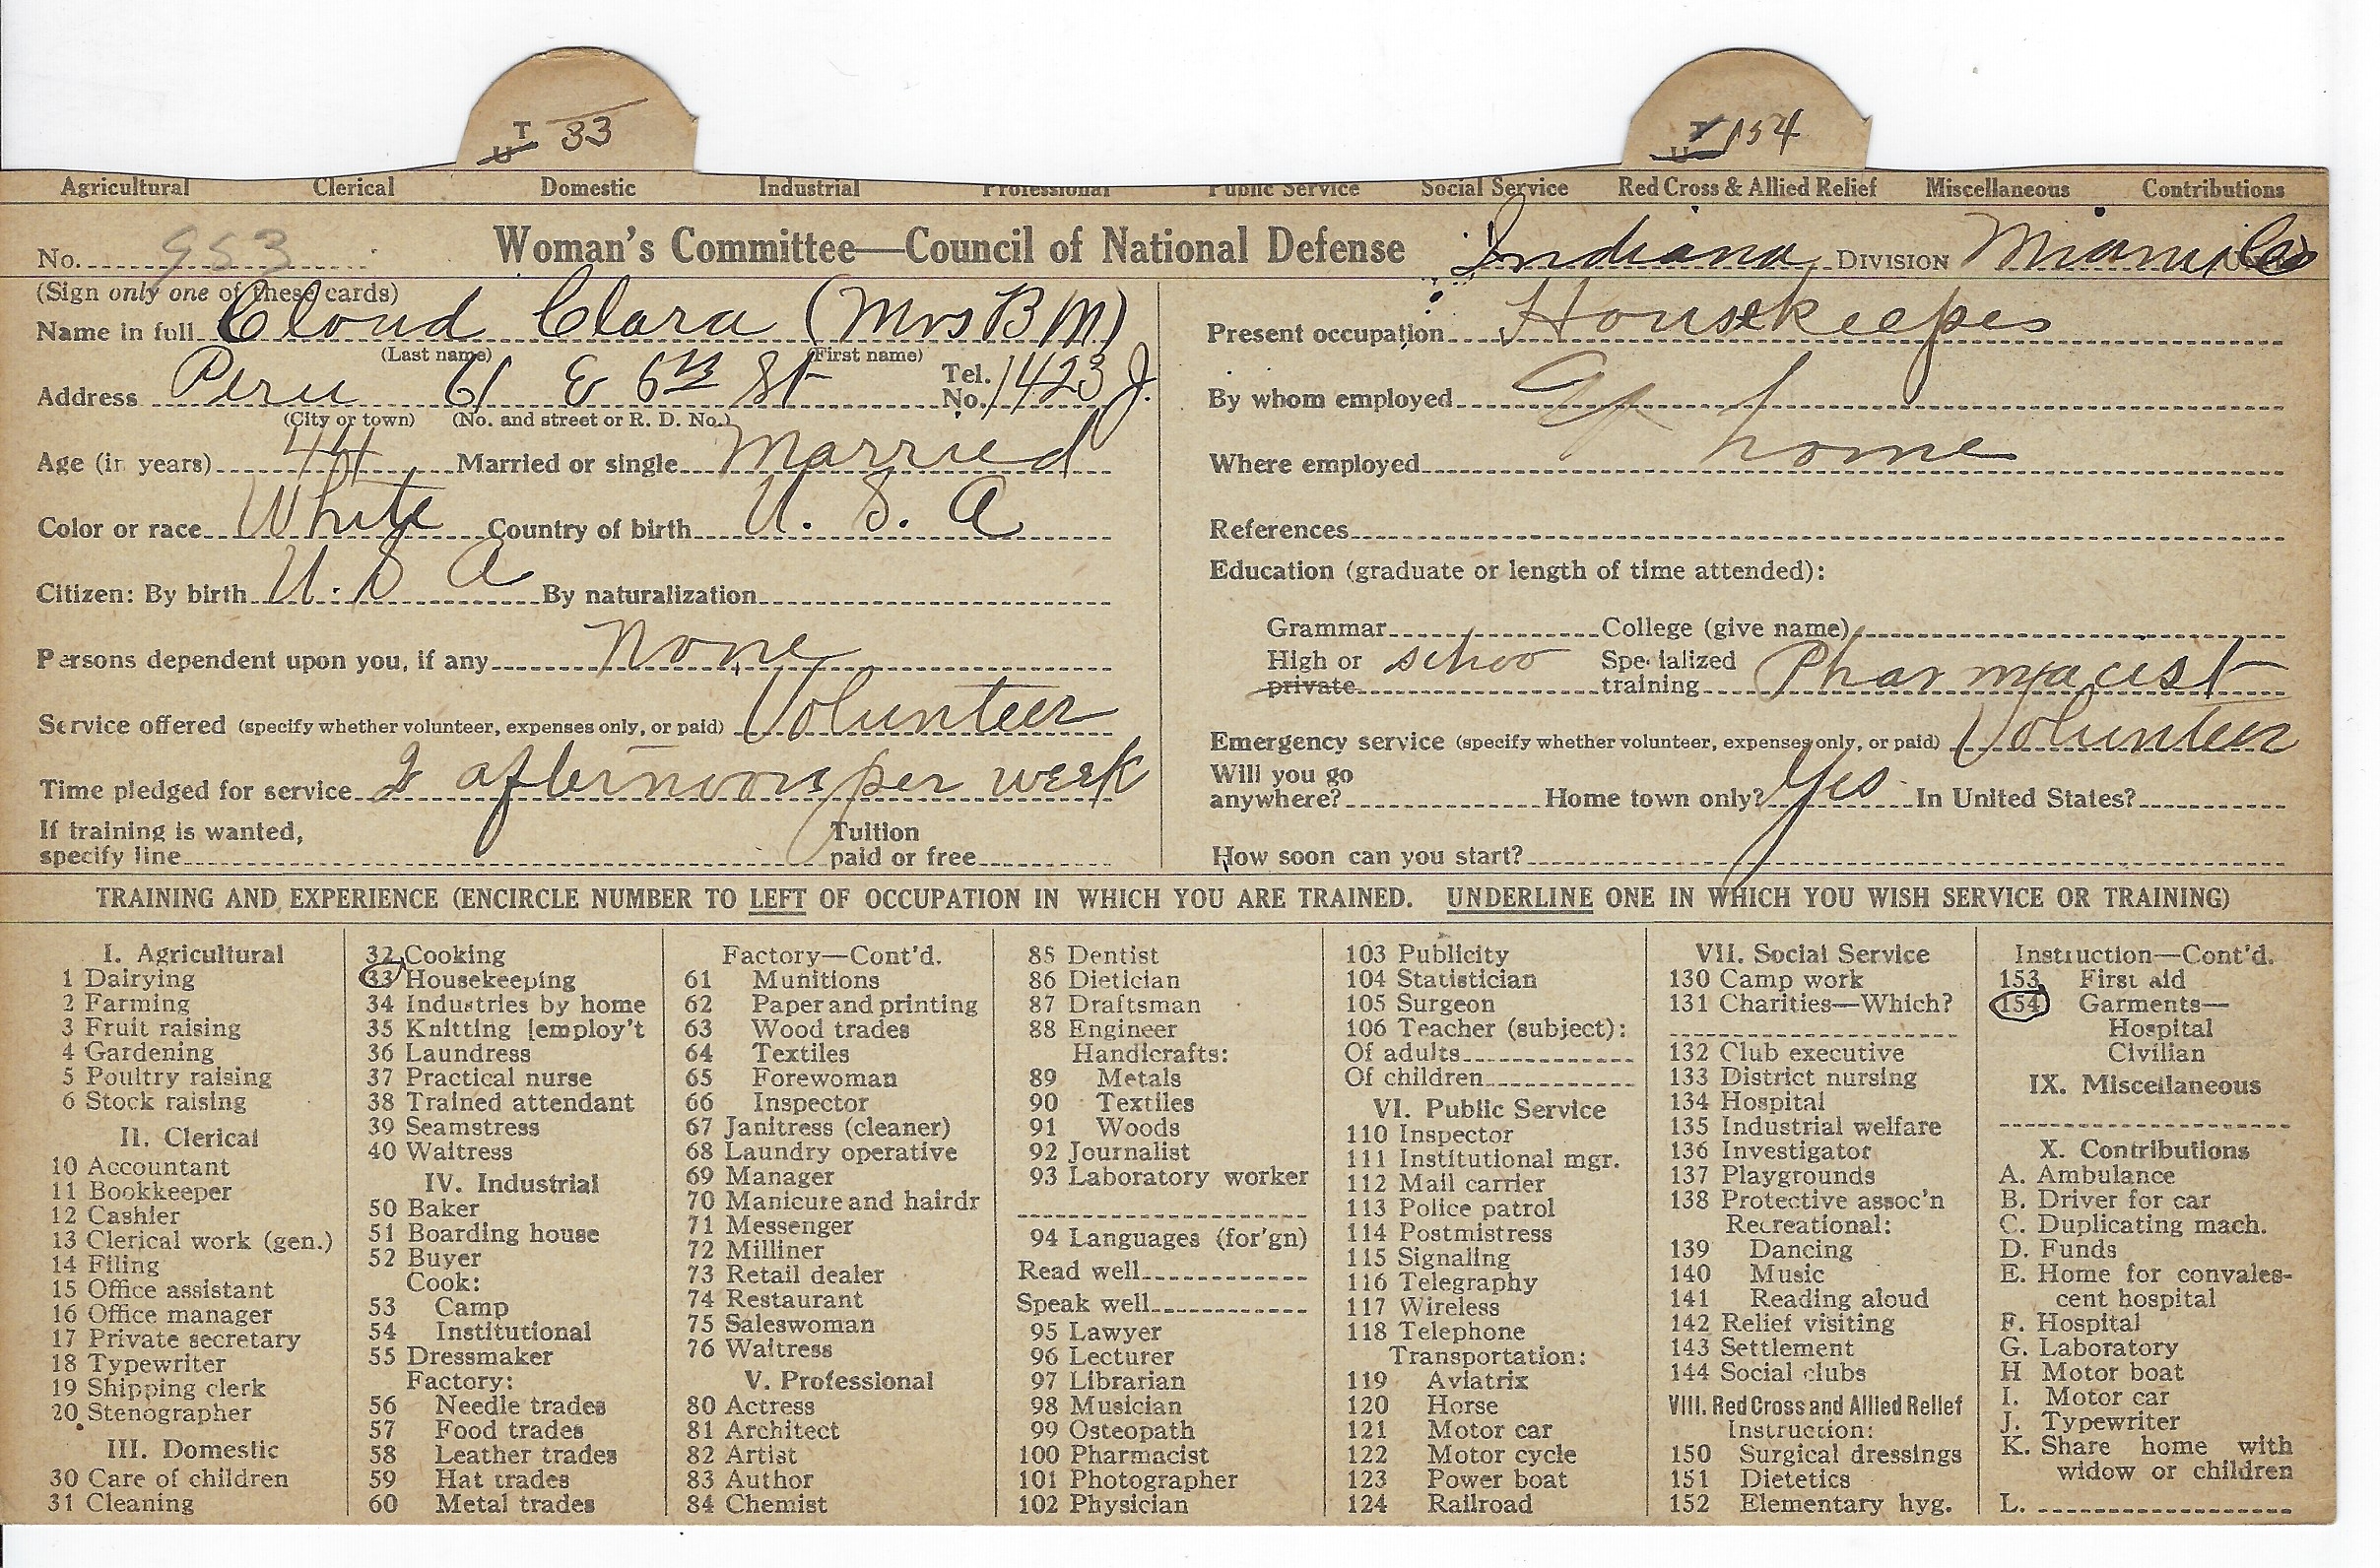 T 33
U
T 154
U
Agricultural Clerical Domestic Industrial Professional Public Service Social Service Red Cross & Allied Relief Miscellaneous Contributions
No. 953 Woman's Committee—Council of National Defense Indiana DIVISION Miami Co
(Sign only one of these cards)
Name in full Cloud Clara (Mrs B M)
(Last name) (First name)
Address Peru 61 E 6th St Tel. No. 1423 J.
(City or town) (No. and street or R. D. No.)
Age (in years) 44 Married or single Married
Color or race White Country of birth U. S. A
Citizen: By birth U. S A By naturalization
Persons dependent upon you, if any None
Service offered (specify whether volunteer, expenses only, or paid) Volunteer
Time pledged for service 2 afternoons per week
If training is wanted, specify line Tuition paid or free
Present occupation Housekeeper
By whom employed At home
Where employed
References
Education (graduate or length of time attended):
Grammar College (give name)
High or private schoo Specialized training Pharmacist
Emergency service (specify whether volunteer, expenses only, or paid) Volunteer
Will you go anywhere? Home town only? Yes In United States?
How soon can you start?
TRAINING AND EXPERIENCE (ENCIRCLE NUMBER TO LEFT OF OCCUPATION IN WHICH YOU ARE TRAINED. UNDERLINE ONE IN WHICH YOU WISH SERVICE OR TRAINING)
I. Agricultural
1 Dairying
2 Farming
3 Fruit raising
4 Gardening
5 Poultry raising
6 Stock raising
II. Clerical
10 Accountant
11 Bookkeeper
12 Cashier
13 Clerical work (gen.)
14 Filing
15 Office assistant
16 Office manager
17 Private secretary
18 Typewriter
19 Shipping clerk
20 Stenographer
III. Domestic
30 Care of children
31 Cleaning
32 Cooking
33 Housekeeping
34 Industries by home
35 Knitting [employ't
36 Laundress
37 Practical nurse
38 Trained attendant
39 Seamstress
40 Waitress
IV. Industrial
50 Baker
51 Boarding house
52 Buyer
Cook:
53 Camp
54 Institutional
55 Dressmaker
Factory:
56 Needle trades
57 Food trades
58 Leather trades
59 Hat trades
60 Metal trades
Factory—Cont'd.
61 Munitions
62 Paper and printing
63 Wood trades
64 Textiles
65 Forewoman
66 Inspector
67 Janitress (cleaner)
68 Laundry operative
69 Manager
70 Manicure and hairdr
71 Messenger
72 Milliner
73 Retail dealer
74 Restaurant
75 Saleswoman
76 Waitress
V. Professional
80 Actress
81 Architect
82 Artist
83 Author
84 Chemist
85 Dentist
86 Dietician
87 Draftsman
88 Engineer
Handicrafts:
89 Metals
90 Textiles
91 Woods
92 Journalist
93 Laboratory worker
94 Languages (for'gn)
Read well
Speak well
95 Lawyer
96 Lecturer
97 Librarian
98 Musician
99 Osteopath
100 Pharmacist
101 Photographer
102 Physician
103 Publicity
104 Statistician
105 Surgeon
106 Teacher (subject):
Of adults
Of children
VI. Public Service
110 Inspector
111 Institutional mgr.
112 Mail carrier
113 Police patrol
114 Postmistress
115 Signaling
116 Telegraphy
117 Wireless
118 Telephone
Transportation:
119 Aviatrix
120 Horse
121 Motor car
122 Motor cycle
123 Power boat
124 Railroad
VII. Social Service
130 Camp work
131 Charities—Which?
132 Club executive
133 District nursing
134 Hospital
135 Industrial welfare
136 Investigator
137 Playgrounds
138 Protective assoc'n
Recreational:
139 Dancing
140 Music
141 Reading aloud
142 Relief visiting
143 Settlement
144 Social clubs
VIII. Red Cross and Allied Relief
Instruction:
150 Surgical dressings
151 Dietetics
152 Elementary hyg.
Instruction—Cont'd.
153 First aid
154 Garments—
Hospital
Civilian
IX. Miscellaneous
X. Contributions
A. Ambulance
B. Driver for car
C. Duplicating mach.
D. Funds
E. Home for convales-
cent hospital
F. Hospital
G. Laboratory
H Motor boat
I. Motor car
J. Typewriter
K. Share home with
widow or children
L.